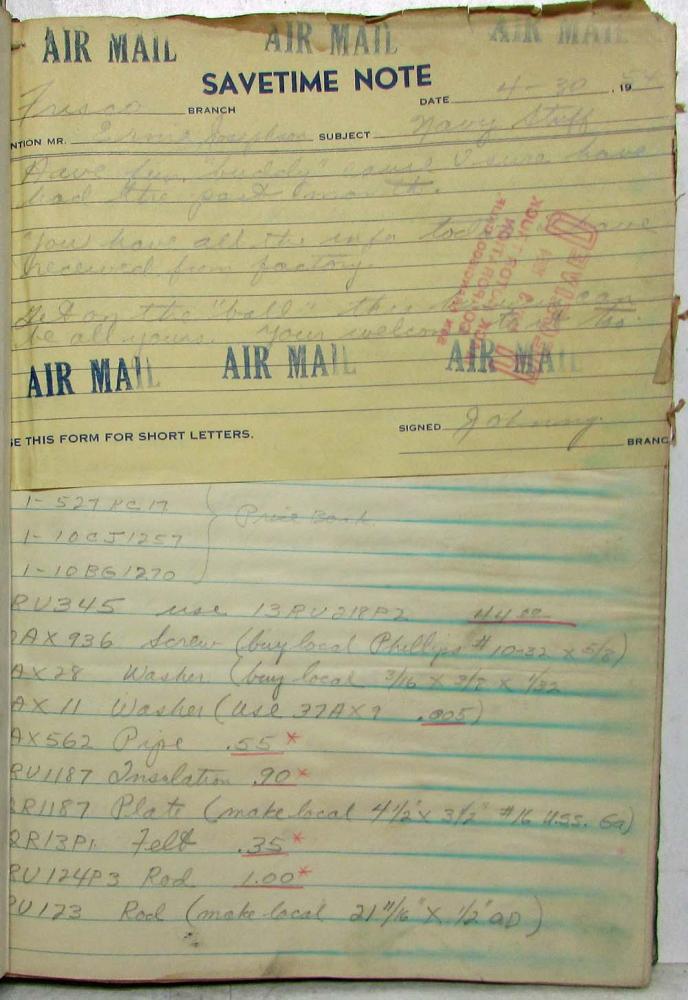 AIR MAIL AIR MAIL AIR MAIL
SAVETIME NOTE
Frisco BRANCH DATE 4-30, 1954
NTION MR. Ernie Josephson SUBJECT Navy Stuff
Have fun, "buddy" cause I sure have
had the past month.
You have all the info today I have
received from factory.
Get on the "ball" this can
be all yours. Your welcome to it too.
AIR MAIL AIR MAIL AIR MAIL
SE THIS FORM FOR SHORT LETTERS.
SIGNED Johnny
BRANC
1-527PC17
1-10CJ1257 Price Book
1-10BG1270
RU345 use 13RU218P2 44.00
AX936 Screw (buy local Phillips #10-32 x 5/8)
AX28 Washer (buy local 3/16 x 3/8 x 1/32
AX11 Washer (Use 37AX9 .005)
AX562 Pipe .55*
RU1187 Insulation .90*
R1187 Plate (make local 4 1/2" x 3 1/2" #16 U.S.S. Ga)
QR13P1 Felt .35*
RU124P3 Rod 1.00*
RU123 Rod (make local 21 11/16" x 1/2" OD)